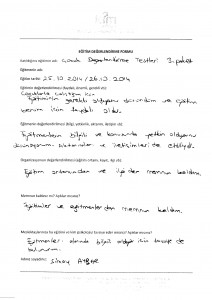 EĞİTİM DEĞERLENDİRME FORMU
Katıldığınız eğitimin adı: Çocuk Değerlendirme Testleri 3. paket
Eğitmenin adı:
Eğitim tarihi: 25.10.2014 / 26.10.2014
Eğitimin değerlendirilmesi (faydalı, önemli, gerekli vb):
Çocuklarla çalıştığım için
Eğitimin gerekli olduğunu düşündüm ve eğitim
benim için faydalı oldu.
Eğitmenin değerlendirilmesi (bilgi, yeterlilik, aktarım, iletişim vb):
Eğitmenlerin bilgili ve konusunda yetkin olduğunu
düşünüyorum. Aktarımları ve iletişimleri de etkiliydi.
Organizasyonun değerlendirilmesi (eğitim ortamı, kayıt, ilgi vb):
Eğitim ortamından ve ilgiden memnun kaldım.
Memnun kaldınız mı? Açıklar mısınız?
Eğitimler ve eğitmenlerden memnun kaldım.
Meslektaşlarınıza bu eğitimi ve/veya psikolojiyi tavsiye eder misiniz? Açıklar mısınız?
Eğitmenler alanında bilgili olduğu için tavsiye de
bulunurum.
Adınız soyadınız: Simay